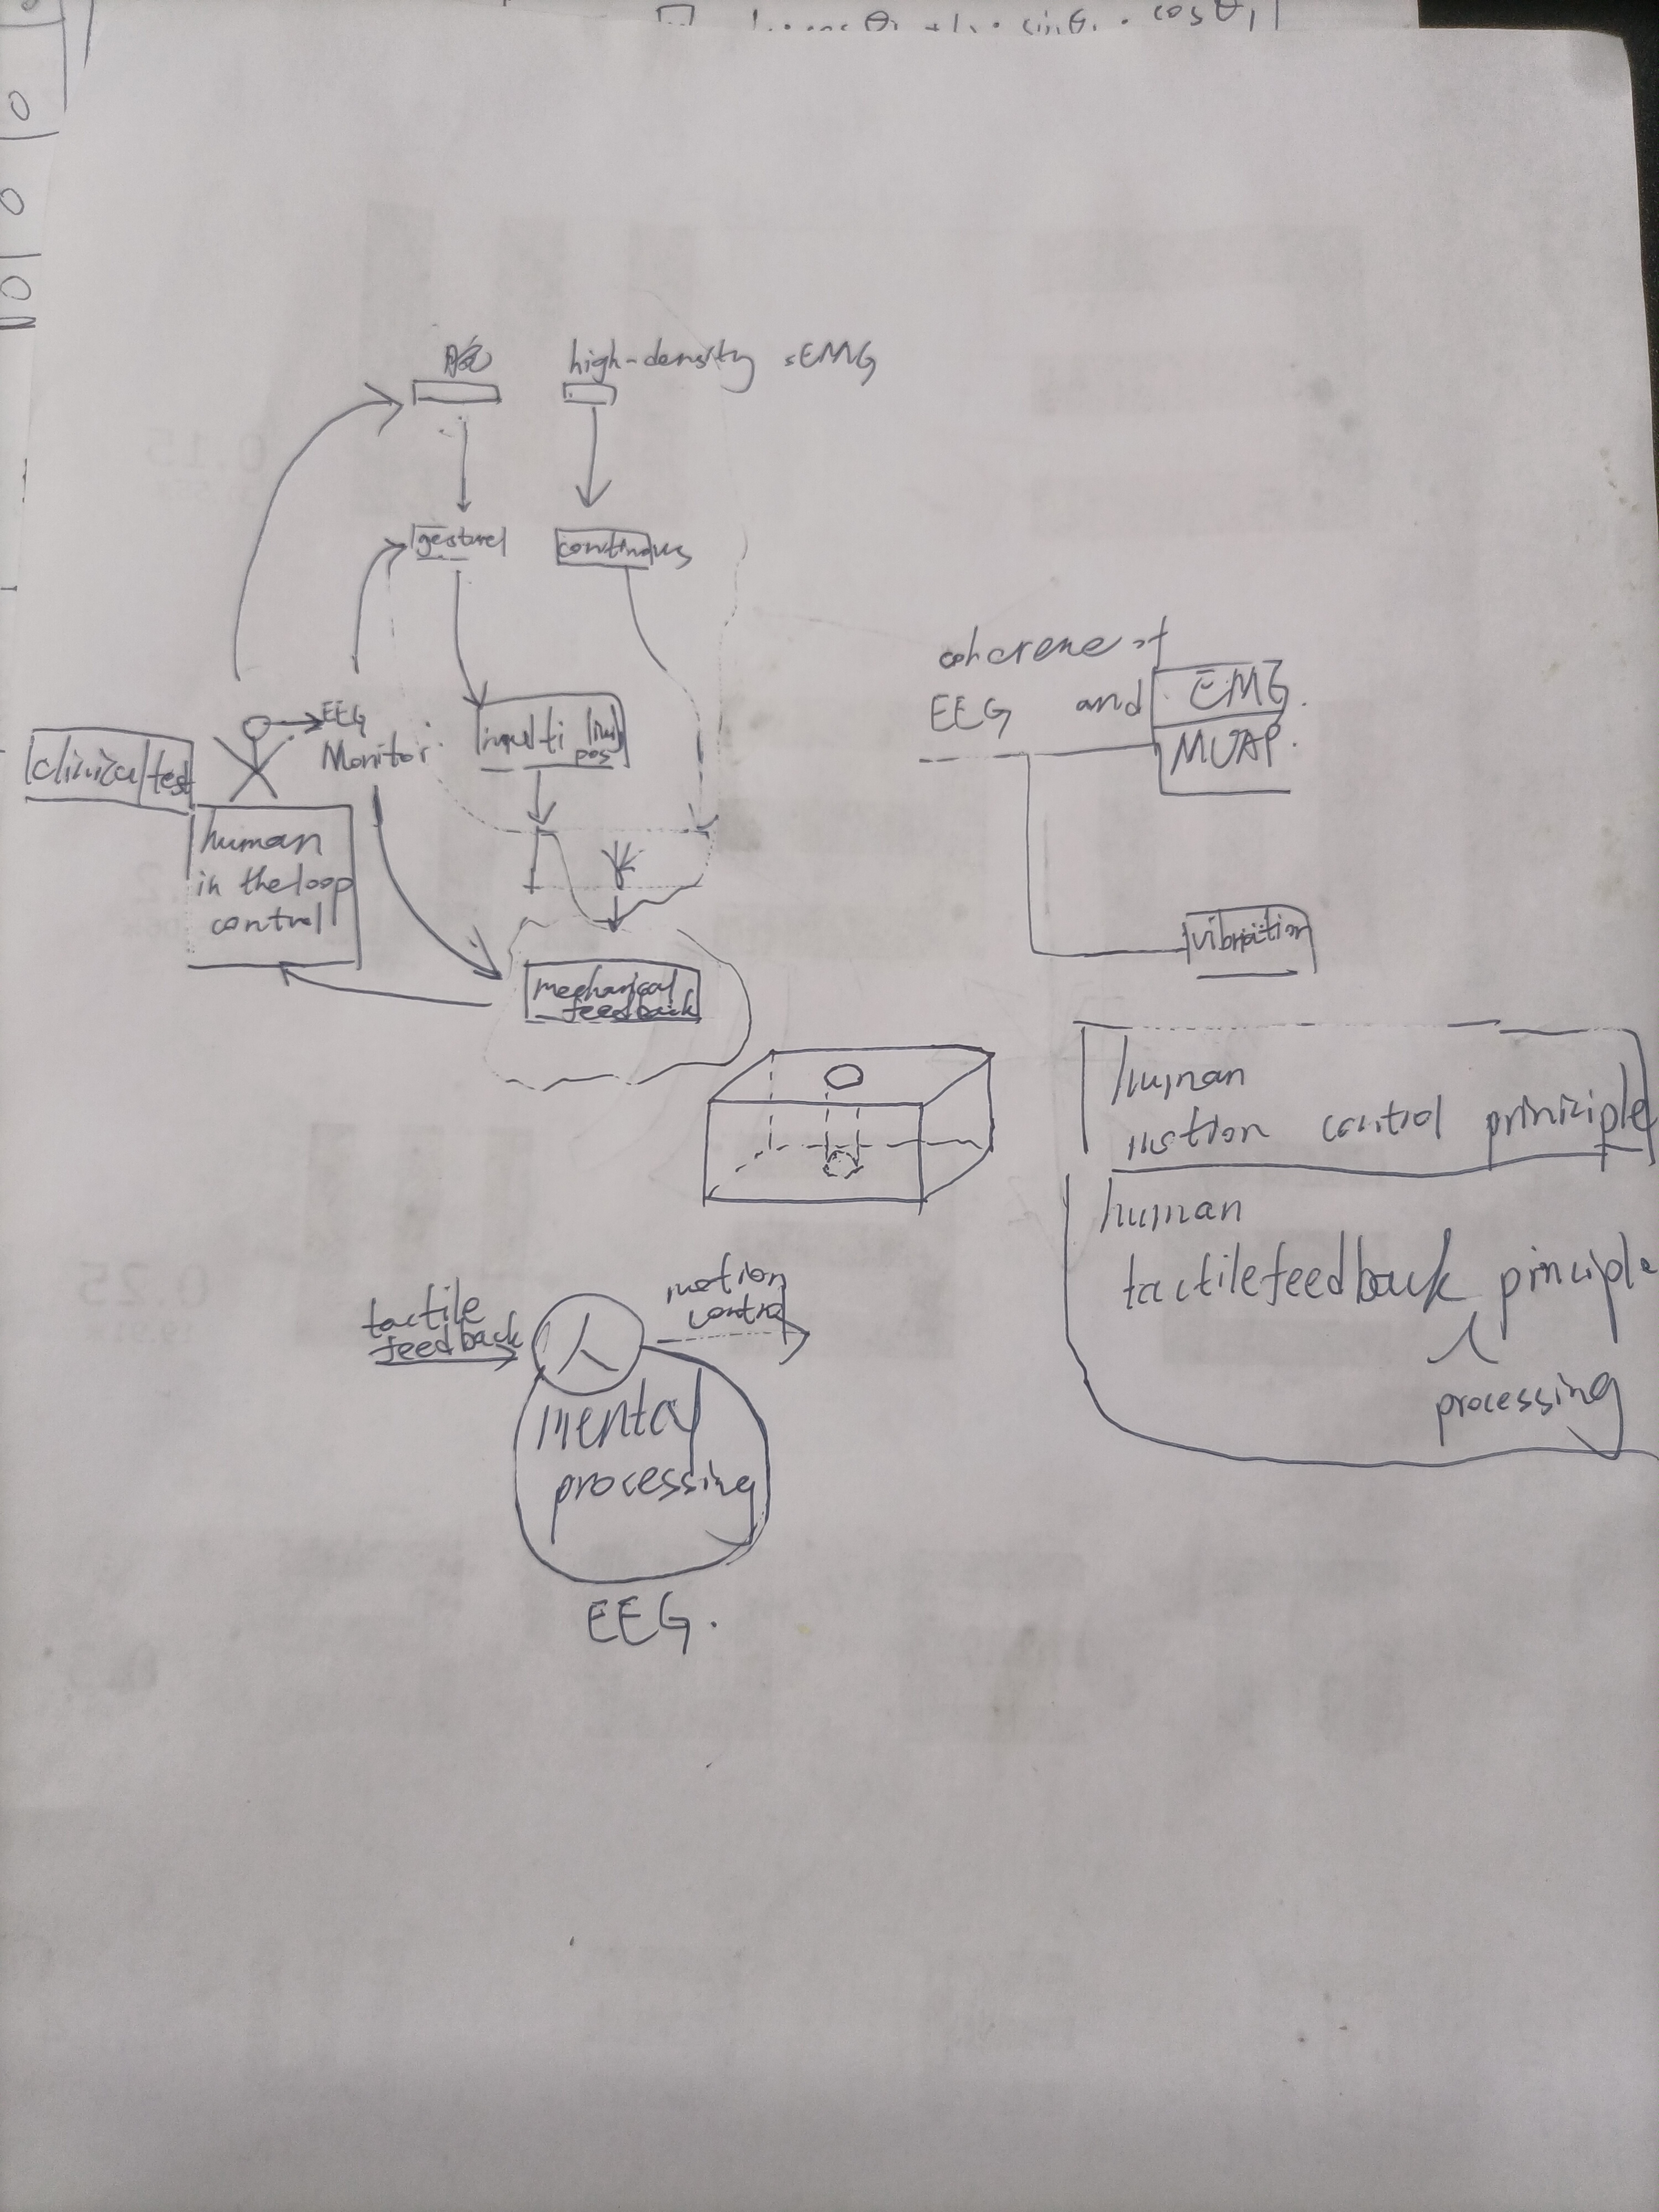 cosθ1
0
0
0
腕
high-density sEMG
gesture
continous
EEG
Monitor
multi
pos
clinical test
human
in the loop
control
mechanical
feedback
coherence of
EEG and EMG.
MUAP.
vibration
human
motion control priniciple
human
tactile feedback principle
processing
tactile
feedback
人
motion
control
mental
processing
EEG.
0.15
0.25